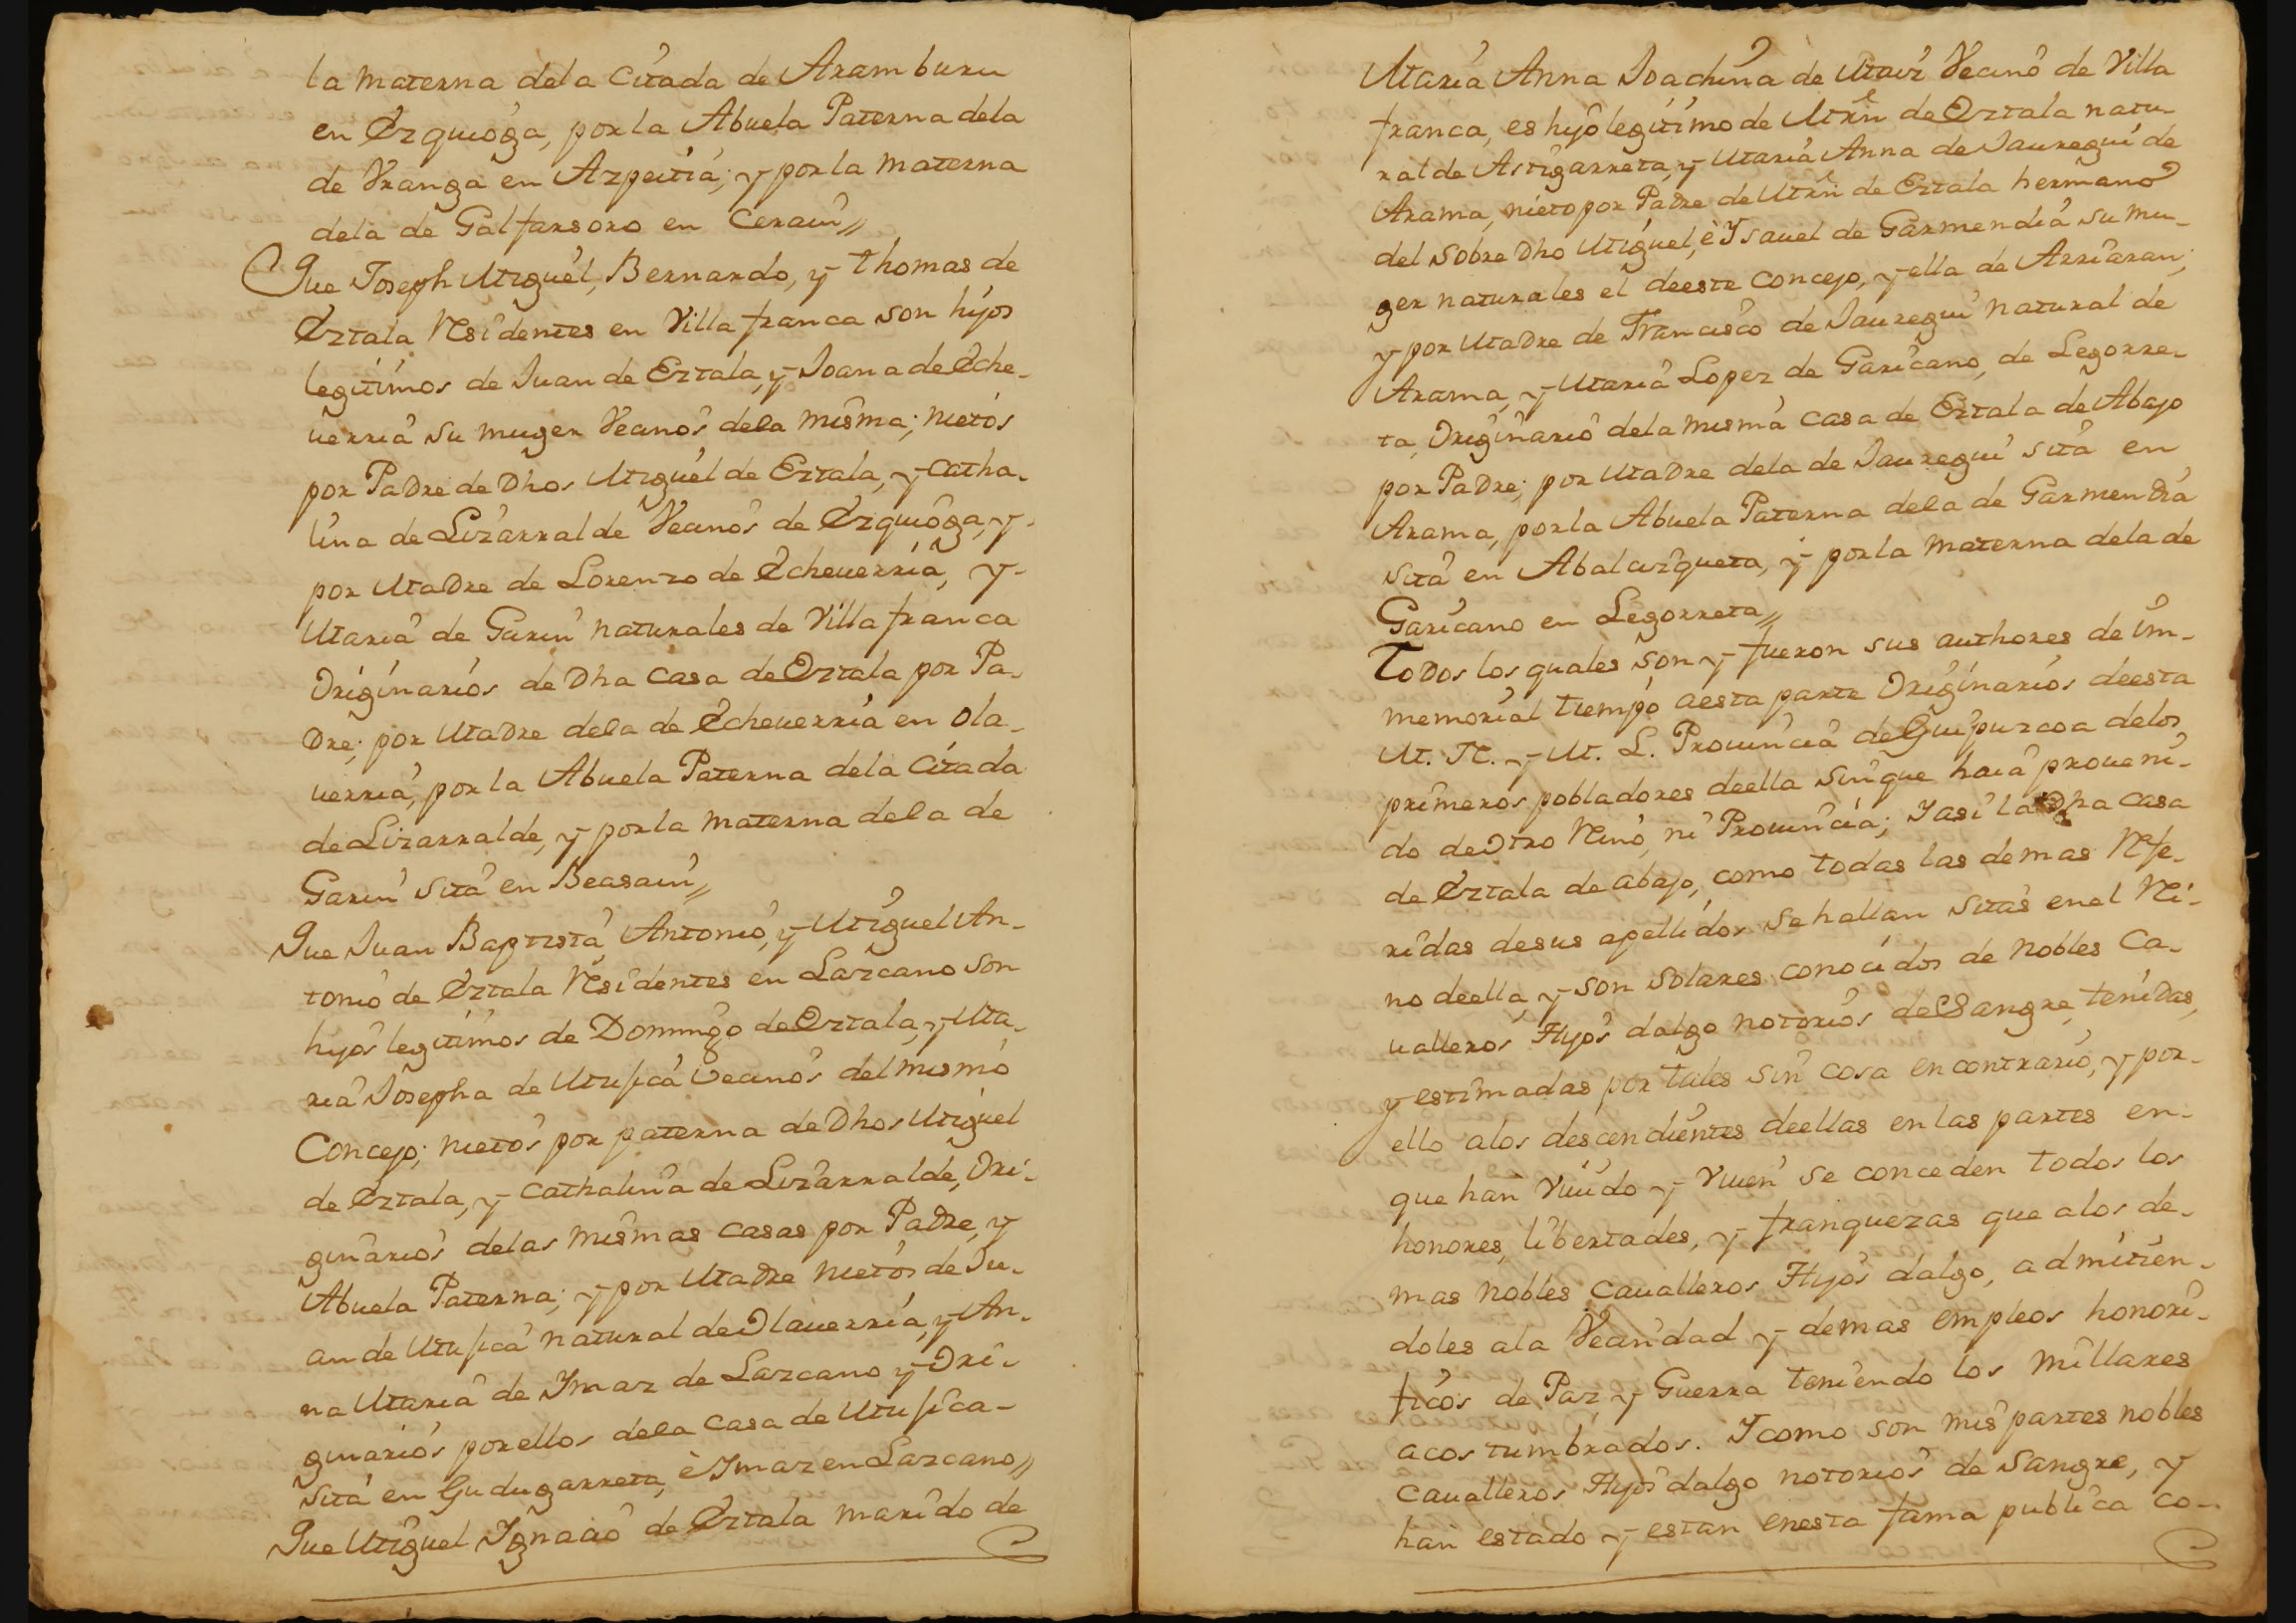 la materna dela Citada de Aramburu
en Ezquioga, por la Abuela Paterna dela
de Vranga en Azpeitia; y por la materna
dela de Galfarsoro en Cerain//
Que Joseph Miguel, Bernardo, y Thomas de
Eztala Residentes en Villafranca son hijos
legitimos de Juan de Eztala, y Joana de Eche-
uerria su muger Vecinos dela misma; nietos
por Padre de Dhos Miguel de Eztala, y Catha-
lina de Lizarralde Vecinos de Ezquioga, y
por Madre de Lorenzo de Echeuerria, y
Maria de Garin naturales de Villafranca
Originarios de Dha Casa de Eztala por Pa-
dre; por Madre dela de Echeuerria en Ola-
uerria, por la Abuela Paterna dela Citada
de Lizarralde, y por la materna dela de
Garin sita en Beasain//
Que Juan Baptista, Antonio, y Miguel An-
tonio de Eztala Residentes en Lazcano son
hijos legitimos de Domingo de Eztala, y Ma-
ria Josepha de Mujica Vecinos del mismo
Concejo; nietos por paterna de Dhos Miguel
de Eztala, y Cathalina de Lizarralde, Ori-
ginarios delas mismas casas por Padre, y
Abuela Paterna; y por Madre nietos de Ju-
an de Mujica natural de Olauerria, y An-
na Maria de Ymaz de Lazcano y Ori-
ginarios por ellos dela Casa de Mujica
sita en Gudugarreta, è Ymaz en Lazcano//
Que Miguel Ygnacio de Eztala marido de
Maria Anna Joachina de Vecino de Villa
franca, es hijo legitimo de Mrn de Eztala natu-
ral de Astigarreta, y Maria Anna de Jauregui de
Arama, nieto por Padre de Mrn de Eztala hermano
del sobre Dho Miguel, è Ysauel de Garmendia su mu-
ger naturales el deeste Concejo, y ella de Arriaran;
y por Madre de Francisco de Jauregui natural de
Arama, y Maria Lopez de Garicano, de Legorre-
ta, Originario dela misma casa de Eztala de Abajo
por Padre; por Madre dela de Jauregui sita en
Arama, por la Abuela Paterna dela de Garmendia
sita en Abalcizqueta, y por la materna dela de
Garicano en Legorreta//
Todos los quales son y fueron sus authores de im-
memorial tiempo aesta parte Originarios deesta
M. N. y M. L. Prouincia de Guipuzcoa delos
primeros pobladores deella sin que haia proueni-
do de Otro Reino, ni Prouincia; Y asi la Dha casa
de Eztala de abajo, como todas las demas Refe-
ridas desus apellidos se hallan sitas enel Rei-
no deella, y son solares conocidos de nobles Ca-
ualleros Hijos dalgo notorios de Sangre, tenidas,
y estimadas por tales sin cosa en contrario, y por
ello alos descendientes deellas enlas partes en
que han viuido y viuen se conceden todos los
honores, libertades, y franquezas que alos de-
mas nobles Caualleros Hijos dalgo, admitien-
doles ala Vecindad y demas empleos honori-
ficos de Paz, y Guerra teniendo los millares
acostumbrados. Y como son mis partes nobles
Caualleros Hijos dalgo notorios de Sangre, y
han estado y estan enesta fama publica co-